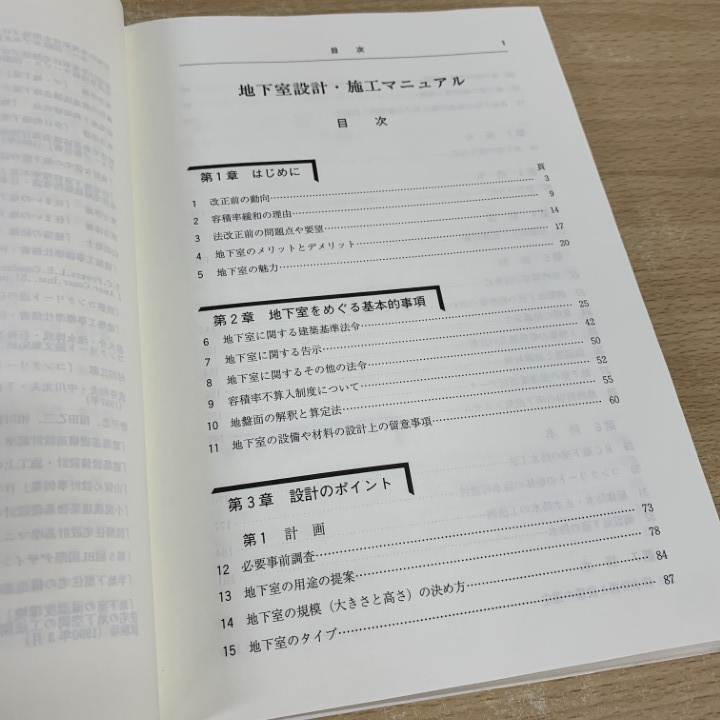 目　次　　1
地下室設計・施工マニュアル
目　次
第1章　はじめに
頁
1　改正前の動向……3
2　容積率緩和の理由……9
3　法改正前の問題点や要望……14
4　地下室のメリットとデメリット……17
5　地下室の魅力……20
第2章　地下室をめぐる基本的事項
6　地下室に関する建築基準法令……25
7　地下室に関する告示……42
8　地下室に関するその他の法令……50
9　容積率不算入制度について……52
10　地盤面の解釈と算定法……55
11　地下室の設備や材料の設計上の留意事項……60
第3章　設計のポイント
第1　計　画
12　必要事前調査……73
13　地下室の用途の提案……78
14　地下室の規模（大きさと高さ）の決め方……84
15　地下室のタイプ……87